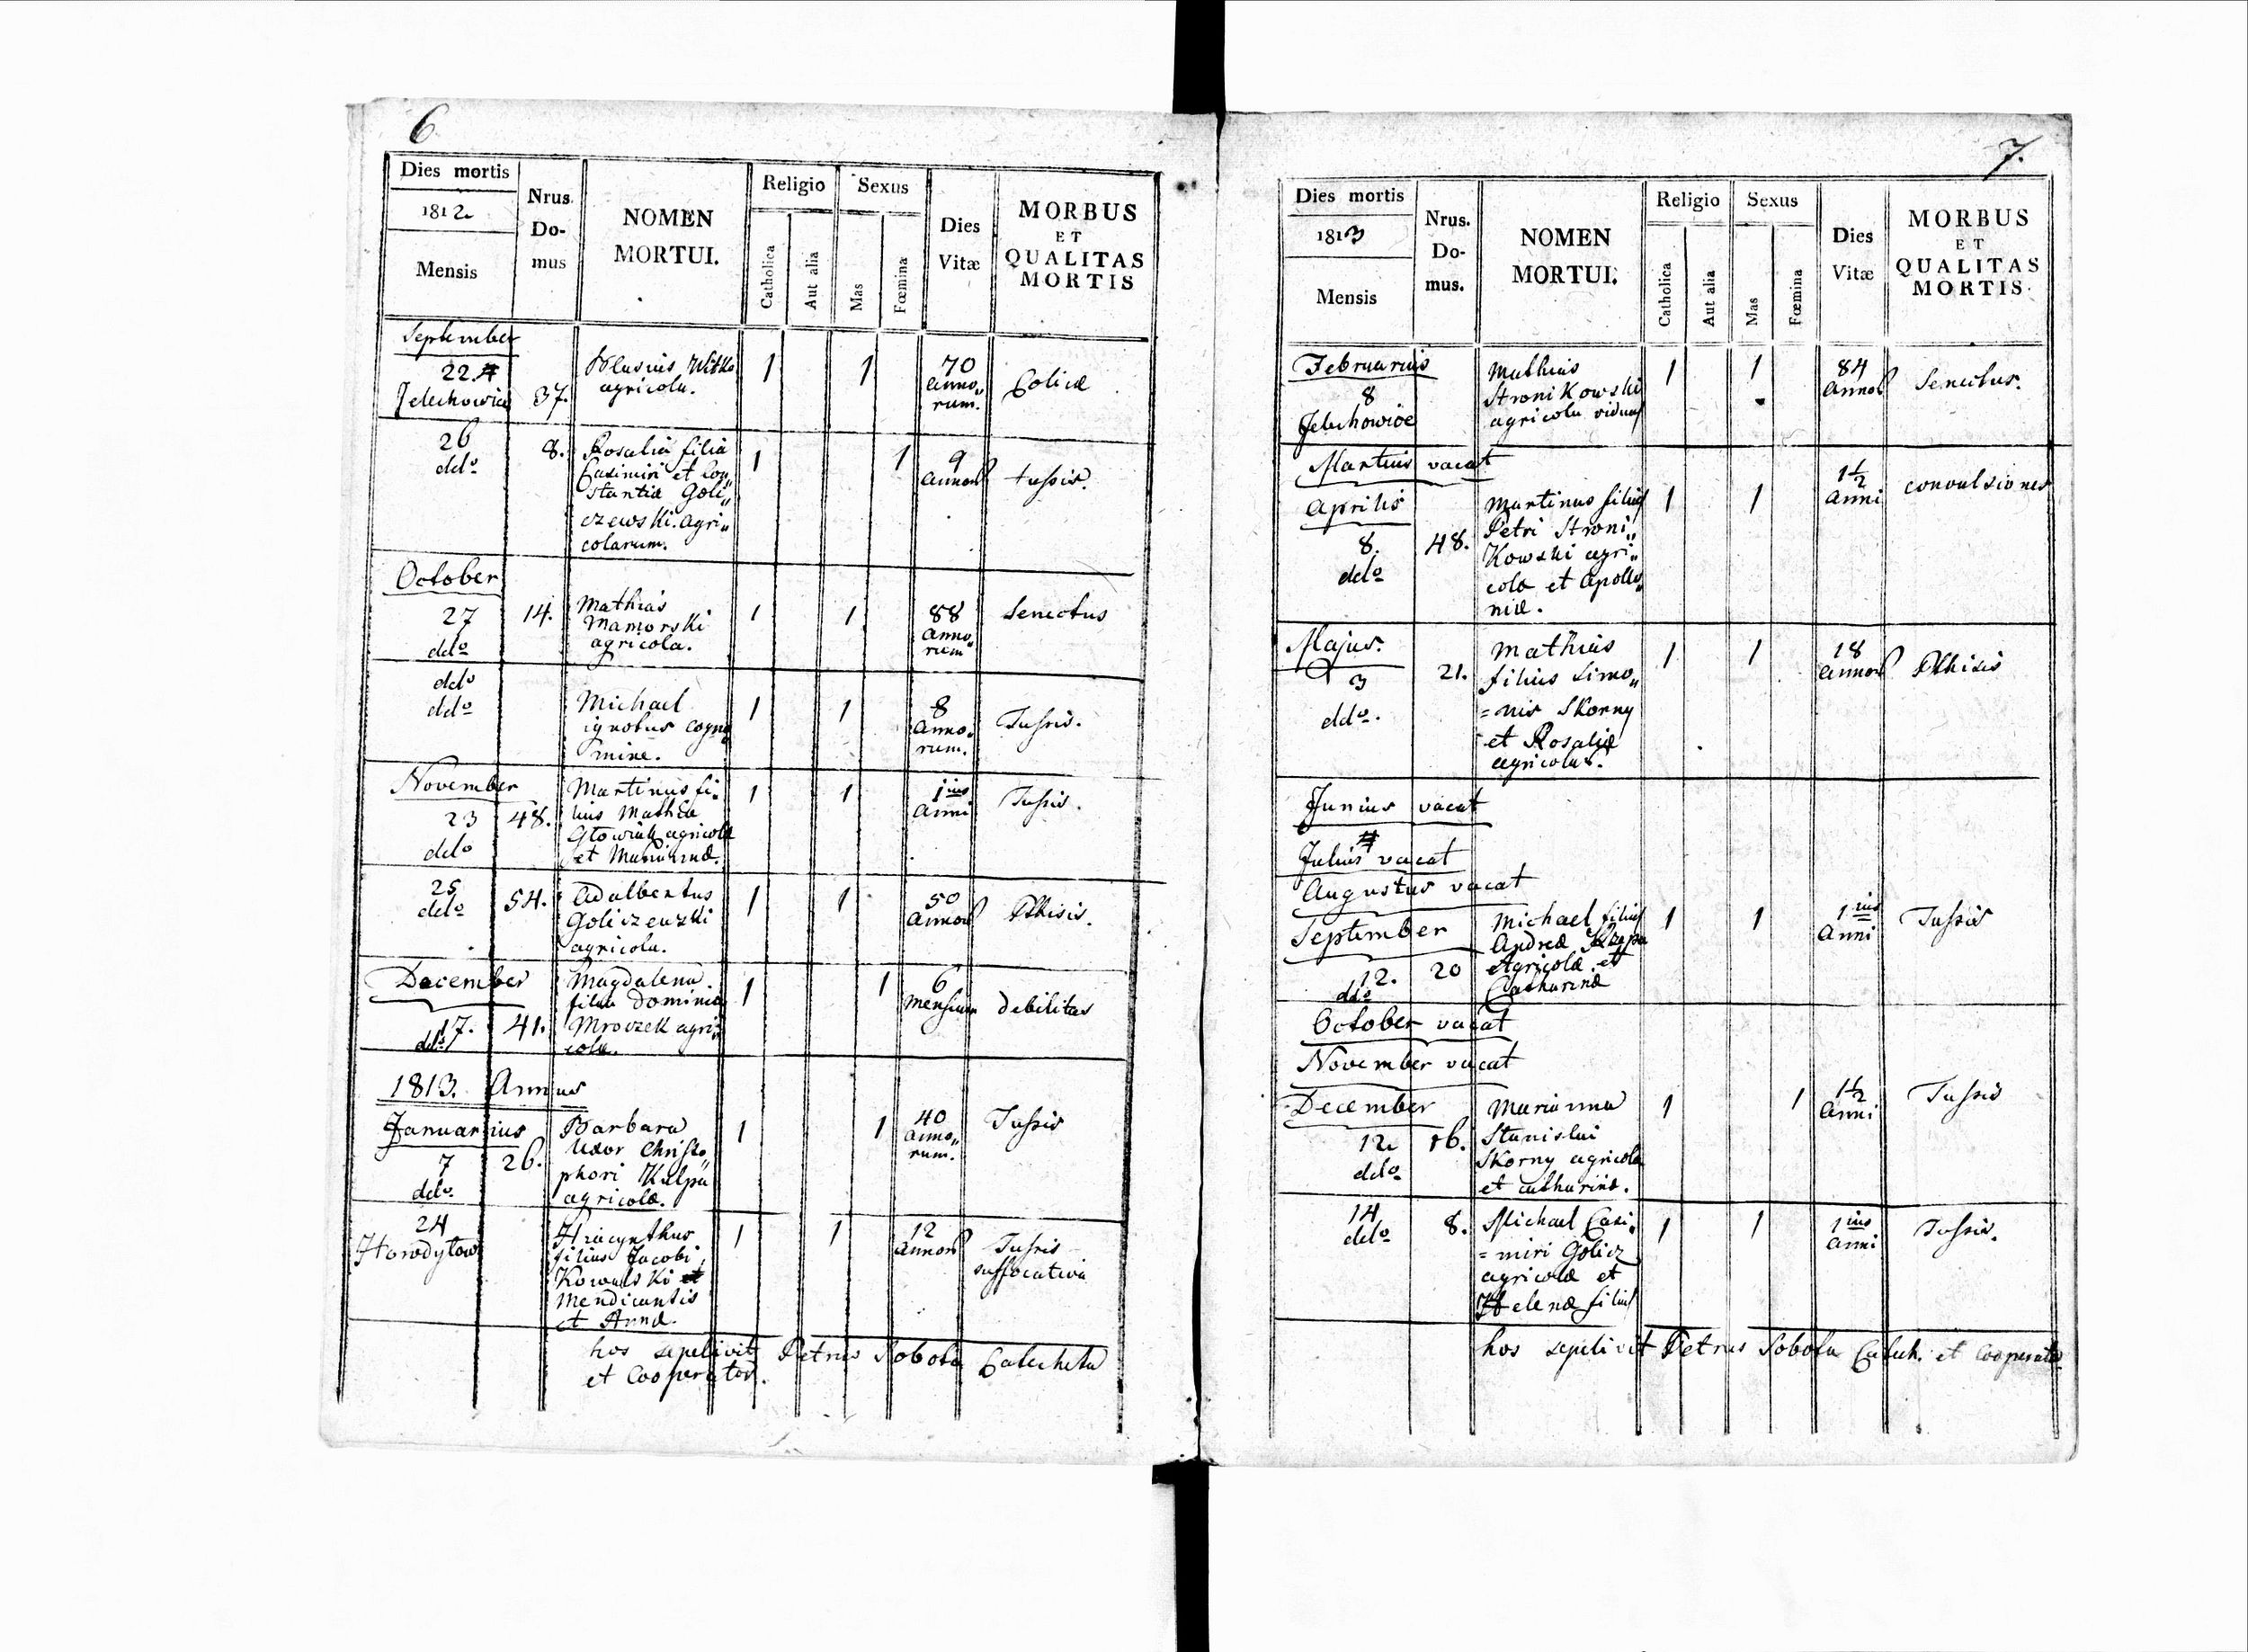 6
Dies mortis
1812
Mensis
Nrus.
Do-
mus
NOMEN
MORTUI.
Religio
Catholica
Aut alia
Sexus
Mas
Fœmina
Dies
Vitæ
MORBUS
ET
QUALITAS
MORTIS
September
22.
37.
Blasius Witko
agricola.
1
1
70
Anno„
rum.
Colica
26
ddo
8.
Rosalia filia
Casimiri et Con„
stantiæ Goli„
czewski agri„
colarum.
1
1
9
Annor
tussis.
October
27
ddo
14.
Mathias
Mamorski
agricola.
1
1
88
Anno„
rum
Senectus
ddo
ddo
Michael
ignotus cogno
mine.
1
1
8
Anno„
rum.
Tussis.
November
23
ddo
48.
Martinus fi„
lius Mathiæ
agricolæ
et Mariannæ.
1
1
1ius
Anni
Tussis.
25
ddo
54.
Adalbertus
agricola.
1
1
50
Annor
Phtisis.
December
17.
ddo
41.
Magdalena
filia Dominici
Mroczek agri„
colæ.
1
1
6
Mensium
debilitas
1813. Annus
Januarius
7
ddo
26.
Barbara
Uxor Christo„
phori Kulpa
agricolæ.
1
1
40
Anno„
rum.
Tussis
24
Horodytow
Hiacynthus
filius Jacobi
Kowalski et
Mendicantis
et Annæ.
1
1
12
Annor
Tussis
suffocativa
hos sepelivit Petrus Sobota Catecheta
et Cooperator.
7.
Dies mortis
1813
Mensis
Nrus.
Do-
mus.
NOMEN
MORTUI.
Religio
Catholica
Aut alia
Sexus
Mas
Fœmina
Dies
Vitæ
MORBUS
ET
QUALITAS
MORTIS
Februarius
8
Jelechowice
Mathias
Stronikowski
agricola viduus
1
1
84
Annor
Senectus.
Martius vacat
Aprilis
8.
ddo
48.
Martinus filius
Petri Stroni„
Kowski agri„
colæ et Apollo„
niæ.
1
1
1½
Anni
convulsiones
Majus.
3
ddo.
21.
Mathias
filius Simo„
=nis Skorny
et Rosaliæ
1
1
18
Annor
Phtisis
Junius vacat
Julius vacat
Augustus vacat
September
12.
ddo
20
Michael filius
Andreæ
Agricolæ et
Catharinæ
1
1
1ius
Anni
Tussis
October vacat
November vacat
December
12
ddo
16.
Marianna
Stanislai
Skorny agricolæ
et Catharinæ.
1
1
1½
Anni
Tussis
14
ddo
8.
Michael Casi„
=miri Golicz
agricolæ et
Helenæ filius
1
1
1ius
Anni
Tussis.
hos sepelivit Petrus Sobota Catech. et Cooperator